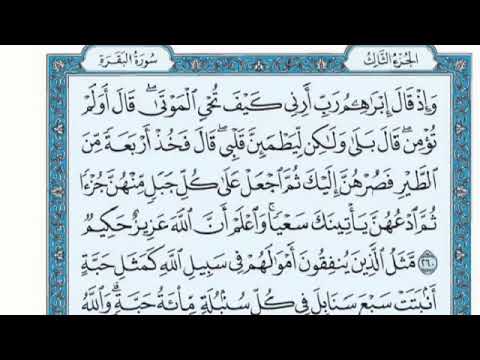 الجزء الثالث
سورة البقرة
وَإِذْ قَالَ إِبْرَٰهِـۧمُ رَبِّ أَرِنِي كَيْفَ تُحْيِ ٱلْمَوْتَىٰۖ قَالَ أَوَلَمْ
تُؤْمِنۖ قَالَ بَلَىٰ وَلَٰكِن لِّيَطْمَئِنَّ قَلْبِيۖ قَالَ فَخُذْ أَرْبَعَةً مِّنَ
ٱلطَّيْرِ فَصُرْهُنَّ إِلَيْكَ ثُمَّ ٱجْعَلْ عَلَىٰ كُلِّ جَبَلٍ مِّنْهُنَّ جُزْءًا
ثُمَّ ٱدْعُهُنَّ يَأْتِينَكَ سَعْيًاۚ وَٱعْلَمْ أَنَّ ٱللَّهَ عَزِيزٌ حَكِيمٌ
٢٦٠ مَّثَلُ ٱلَّذِينَ يُنفِقُونَ أَمْوَٰلَهُمْ فِي سَبِيلِ ٱللَّهِ كَمَثَلِ حَبَّةٍ
أَنۢبَتَتْ سَبْعَ سَنَابِلَ فِي كُلِّ سُنۢبُلَةٍ مِّا۟ئَةُ حَبَّةٍۗ وَٱللَّهُ